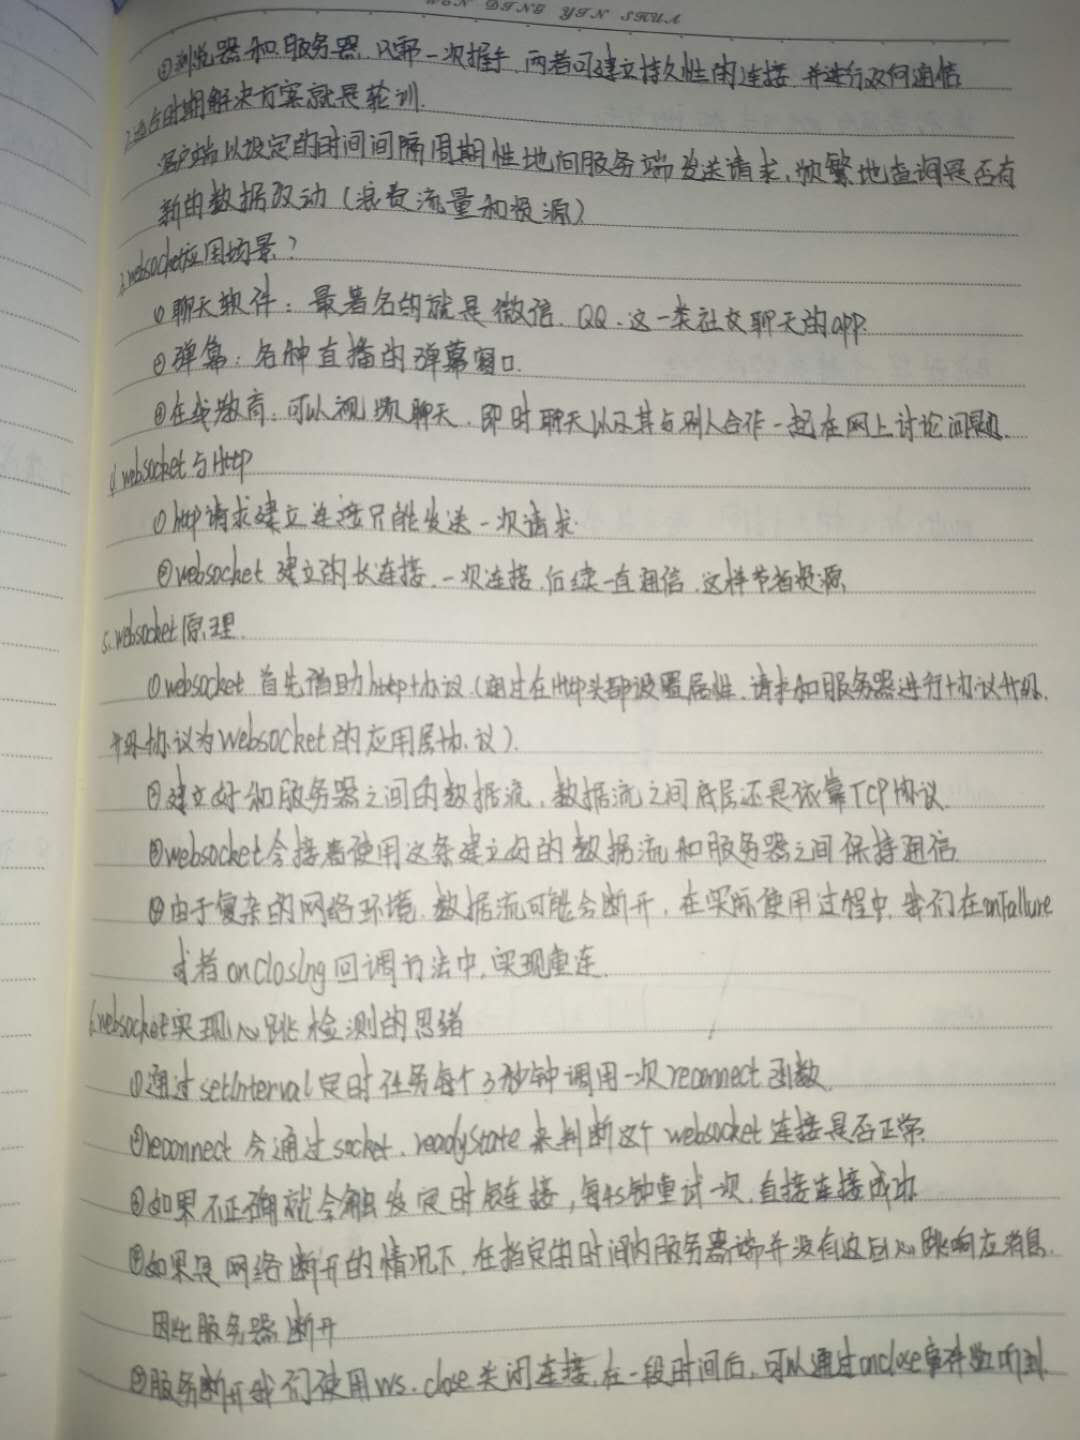 WEN DING YIN SHUA
④浏览器和服务器,只需一次握手,两者可建立持久性的连接,并进行双向通信
2.过去时期解决方案就是轮训.
客户端以设定的时间间隔周期性地向服务端发送请求,频繁地查询是否有
新的数据改动(浪费流量和资源)
3.websocket应用场景?
①聊天软件:最著名的就是微信.QQ.这一类社交聊天的app.
②弹幕:各种直播的弹幕窗口.
③在线教育:可以视频聊天.即时聊天以及其与别人合作一起在网上讨论问题.
4.websocket与Http
①http请求建立连接只能发送一次请求.
②websocket建立的长连接.一次连接.后续一直通信.这样节省资源
5.websocket原理.
①websocket首先借助http协议(通过在Http头部设置属性.请求和服务器进行协议升级.
升级协议为websocket的应用层协议).
②建立好和服务器之间的数据流,数据流之间底层还是依靠TCP协议.
③websocket会接着使用这条建立好的数据流和服务器之间保持通信
④由于复杂的网络环境.数据流可能会断开,在实际使用过程中.我们在onFailure
或者onClosing回调方法中,实现重连.
6.websocket实现心跳检测的思绪
①通过setInterval定时任务每个3秒钟调用一次reconnect函数
②reconnect会通过socket.readyState来判断这个websocket连接是否正常.
③如果不正确就会触发定时连接,每4s钟重试一次.直接连接成功
④如果是网络断开的情况下.在指定的时间内服务器端并没有返回心跳响应消息.
因此服务器断开
⑤服务断开我们使用ws.close关闭连接.在一段时间后,可以通过onclose事件监听到.